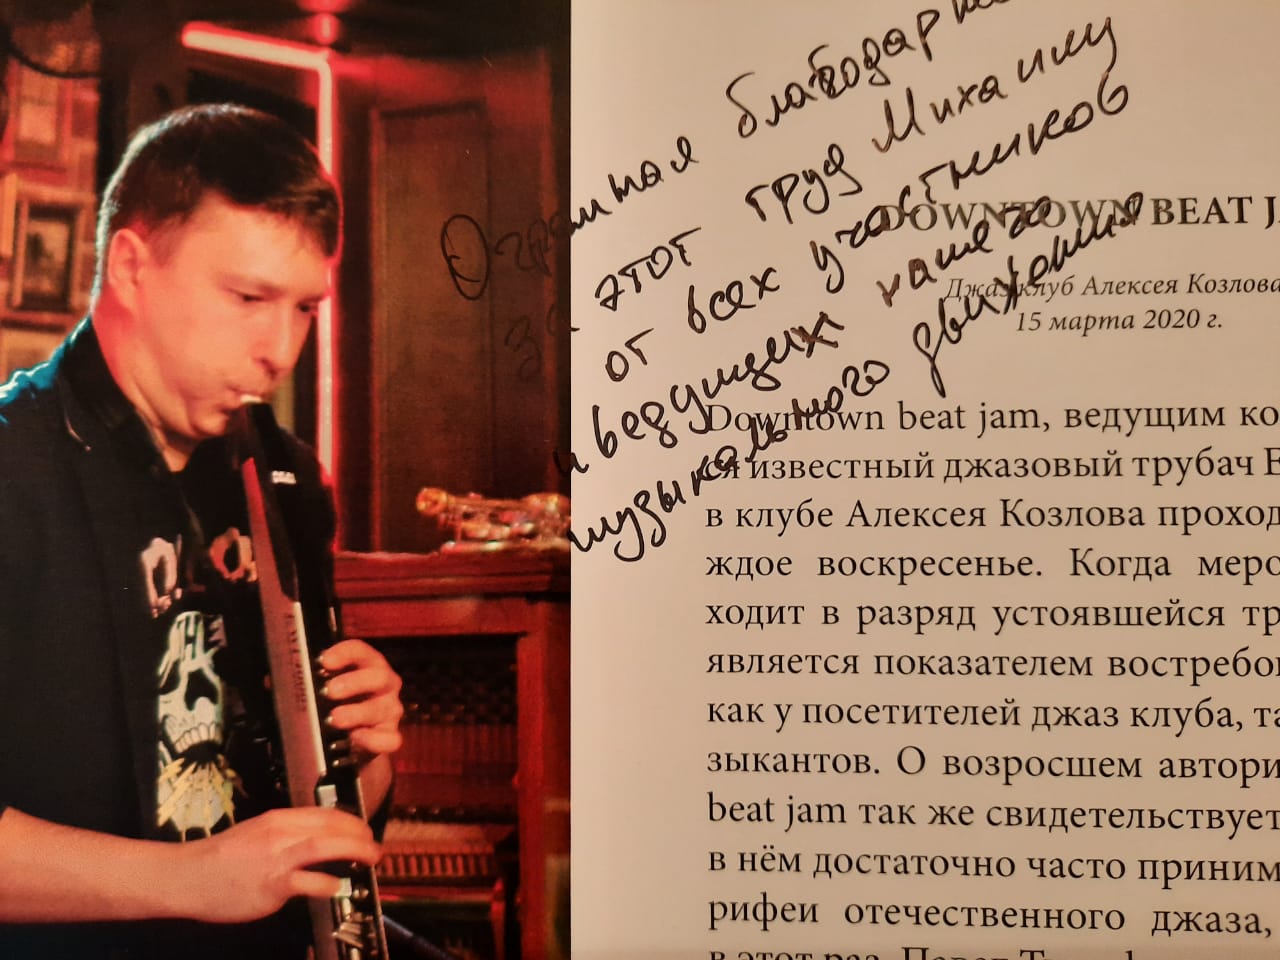 Огромная благодарн
за этот труд Михаилу
от всех участников
и ведущих нашего
музыкального движения
DOWNTOWN BEAT J
Джаз клуб Алексея Козлова
15 марта 2020 г.
Downtown beat jam, ведущим ко
ся известный джазовый трубач Е
в клубе Алексея Козлова проход
ждое воскресенье. Когда меро
ходит в разряд устоявшейся тр
является показателем востребо
как у посетителей джаз клуба, та
зыкантов. О возросшем автори
beat jam так же свидетельствует
в нём достаточно часто приним
рифеи отечественного джаза,
в этот раз Павел